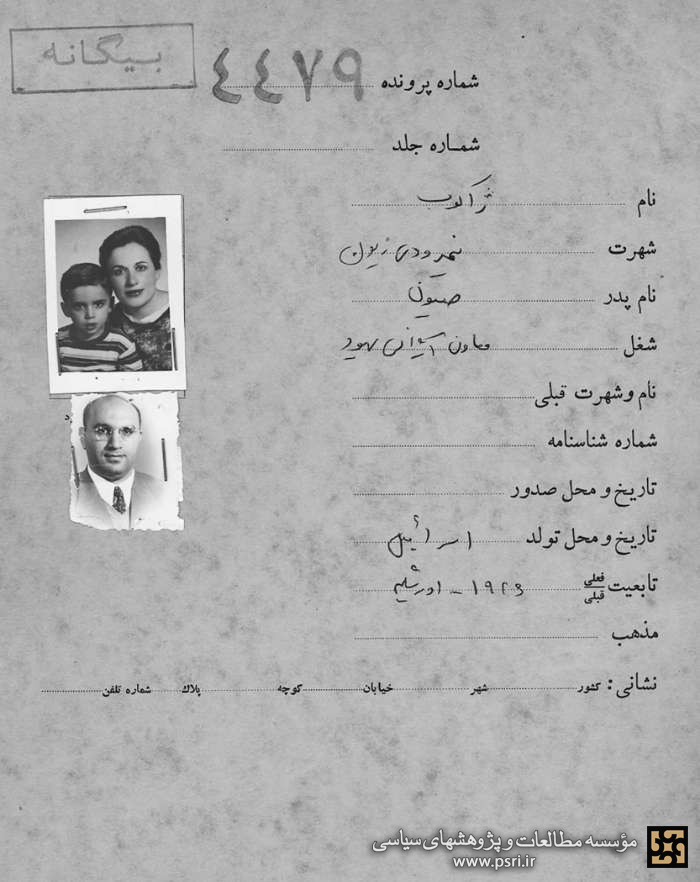 بیگانه
شماره پرونده ٤٤٧٩
شماره جلد
نام ژاکوب
شهرت نمرودی
نام پدر صیون
شغل معاون آژانس یهود
نام و شهرت قبلی
شماره شناسنامه
تاریخ و محل صدور
تاریخ و محل تولد اسرائیل
تابعیت فعلی قبلی ۱۹۲۶ - اورشلیم
مذهب
نشانی: کشور شهر خیابان کوچه پلاک شماره تلفن
مؤسسه مطالعات و پژوهشهای سیاسی
www.psri.ir